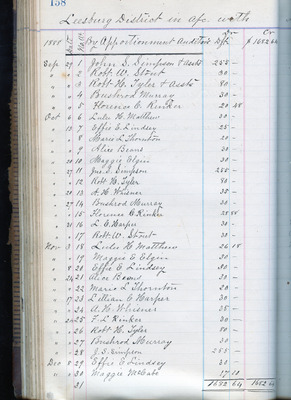 158
Leesburg District in a/c with
Dr Cr
1888 Date No. Wt. By Apportionment Auditors Dfts. $1682 64
Sep 27 1 John S. Simpson & Assts 255 -
" " 2 Robt W. Stout 30 -
" " 3 Robt H. Tyler & Assts 80 -
" " 4 Bushrod Murray 30 -
" " 5 Florence C. Rinker 20 48
Oct 6 6 Lula H. Matthew 30 -
" 13 7 Effie E. Lindsey 25 -
" " 8 Marie L. Thornton 20 -
" " 9 Alice Beans 30 -
" 20 10 Maggie Elgin 30 -
" 27 11 Jno. S. Simpson 255 -
" " 12 Robt H. Tyler 80 -
" 20 13 A. H. Whisner 35 -
" 27 14 Bushrod Murray 30 -
" " 15 Florence C Rinker 35 58
" 31 16 L. E. Harper 30 -
" " 17 Robt. W. Stout 30 -
Nov 3 18 Lula H Matthew 26 18
" " 19 Maggie E Elgin 30 -
" " 20 Effie E Lindsey 30 -
" 24 21 Alice Beans 30 -
" " 22 Marie L Thornton 20 -
" 17 23 Lillian E Harper 30 -
" " 24 A. H. Whisner 35 -
" 24 25 F. L Rinker 30 -
" " 26 Robt H. Tyler 80 -
" " 27 Bushrod Murray 30 -
" " 28 J. S. Simpson 255 -
Dec 8 29 Effie E Lindsey 30 -
" " 30 Maggie 17 10
31 1682 64 1682 64